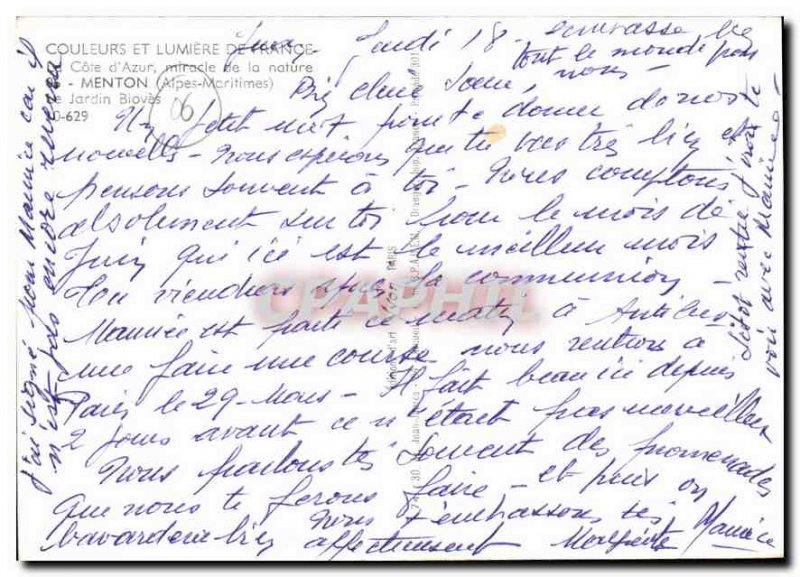 COULEURS ET LUMIÈRE DE FRANCE
Côte d'Azur, miracle de la nature
MENTON (Alpes-Maritimes)
Le Jardin Biovès
06
Jeudi 18
embrasse
tout le monde pour
nous -
Un petit mot pour te donner de nos
nouvelles - Nous espérons que tu vas très bien et
pensons souvent à toi - Nous comptons
absolument sur toi pour le mois de
Juin qui ici est le meilleur mois
Tu viendras après la communion -
Maurice est parti ce matin à Antibes
faire une course nous rentrons à
Paris le 29 Mars - Il fait beau ici depuis
2 jours avant ce n'était pas merveilleux
Nous parlons souvent des promenades
que nous te ferons faire - et puis on
bavardera bien
Nous t'embrassons très
affectueusement
Maurice
J'ai signé pour Maurice car il
n'est pas encore rentré
Sitôt rentré j'irai te
voir avec Maurice -
CPAPHIL
PARIS